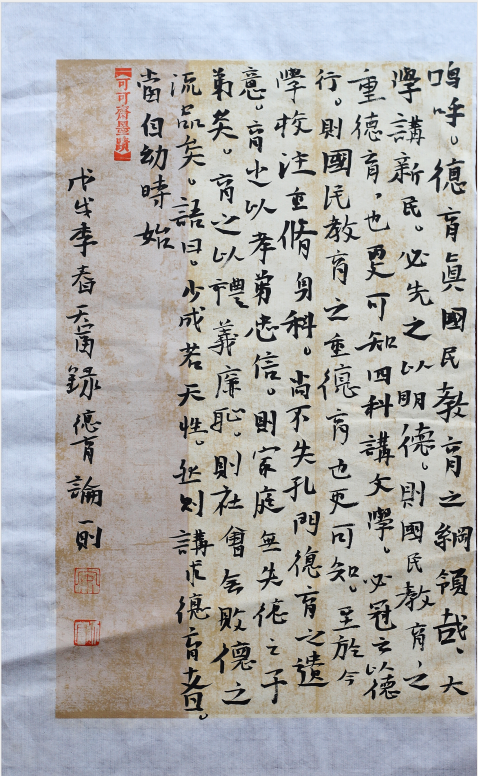 嗚呼。德育眞國民教育之綱領哉、大
學講新民。必先之以明德。則國民教育之
重德育、也更可知四科講文學。必冠云以德
行。則國民教育之重德育也更可知。至於今
學校注重脩身科。尚不失孔門德育之遺
意。育之以孝弟忠信。則家庭無失德之子
弟矣。育之以禮義廉恥。則社會無敗德之
流品矣。語曰。少成若天性。然則講求德育者。
當自幼時始
可可齋墨蹟
戊戌季春天甯錄德育論一則